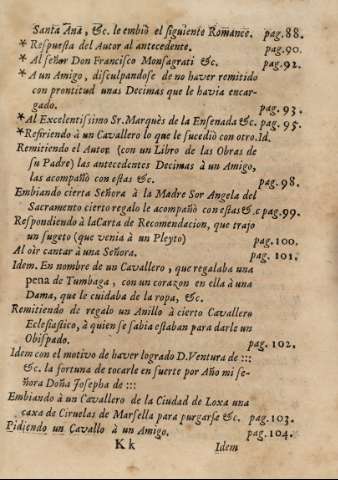 Santa Ana, &c. le embiò el siguiente Romance. pag.88.
* Respuesta del Autor al antecedente. pag.90.
* Al señor Don Francisco Monsagrati &c. pag.92.
* A un Amigo, disculpandose de no haver remitido
con prontitud unas Decimas que le havia encar-
gado. pag.93.
* Al Excelentissimo Sr. Marquès de la Ensenada &c. pag. 95.
* Refiriendo à un Cavallero lo que le sucediò con otro. Id.
Remitiendo el Autor (con un Libro de las Obras de
su Padre) las antecedentes Decimas à un Amigo,
las acompañò con estas &c. pag.98.
Embiando cierta Señora à la Madre Sor Angela del
Sacramento cierto regalo le acompañò con estas &.c pag.99.
Respondiendo à la Carta de Recomendacion, que trajo
un sugeto (que venia à un Pleyto) pag.100.
Al oir cantar à una Señora. pag.101.
Idem. En nombre de un Cavallero, que regalaba una
pena de Tumbaga, con un corazon en ella à una
Dama, que le cuidaba de la ropa, &c.
Remitiendo de regalo un Anillo à cierto Cavallero
Eclesiastico, à quien se sabia estaban para darle un
Obispado. pag.102.
Idem con el motivo de haver logrado D. Ventura de :::
&c. la fortuna de tocarle en suerte por Año mi se-
ñora Doña Josepha de :::
Embiando à un Cavallero de la Ciudad de Loxa una
caxa de Ciruelas de Marsella para purgarse &c. pag.103.
Pidiendo un Cavallo à un Amigo. pag.104.
Kk Idem